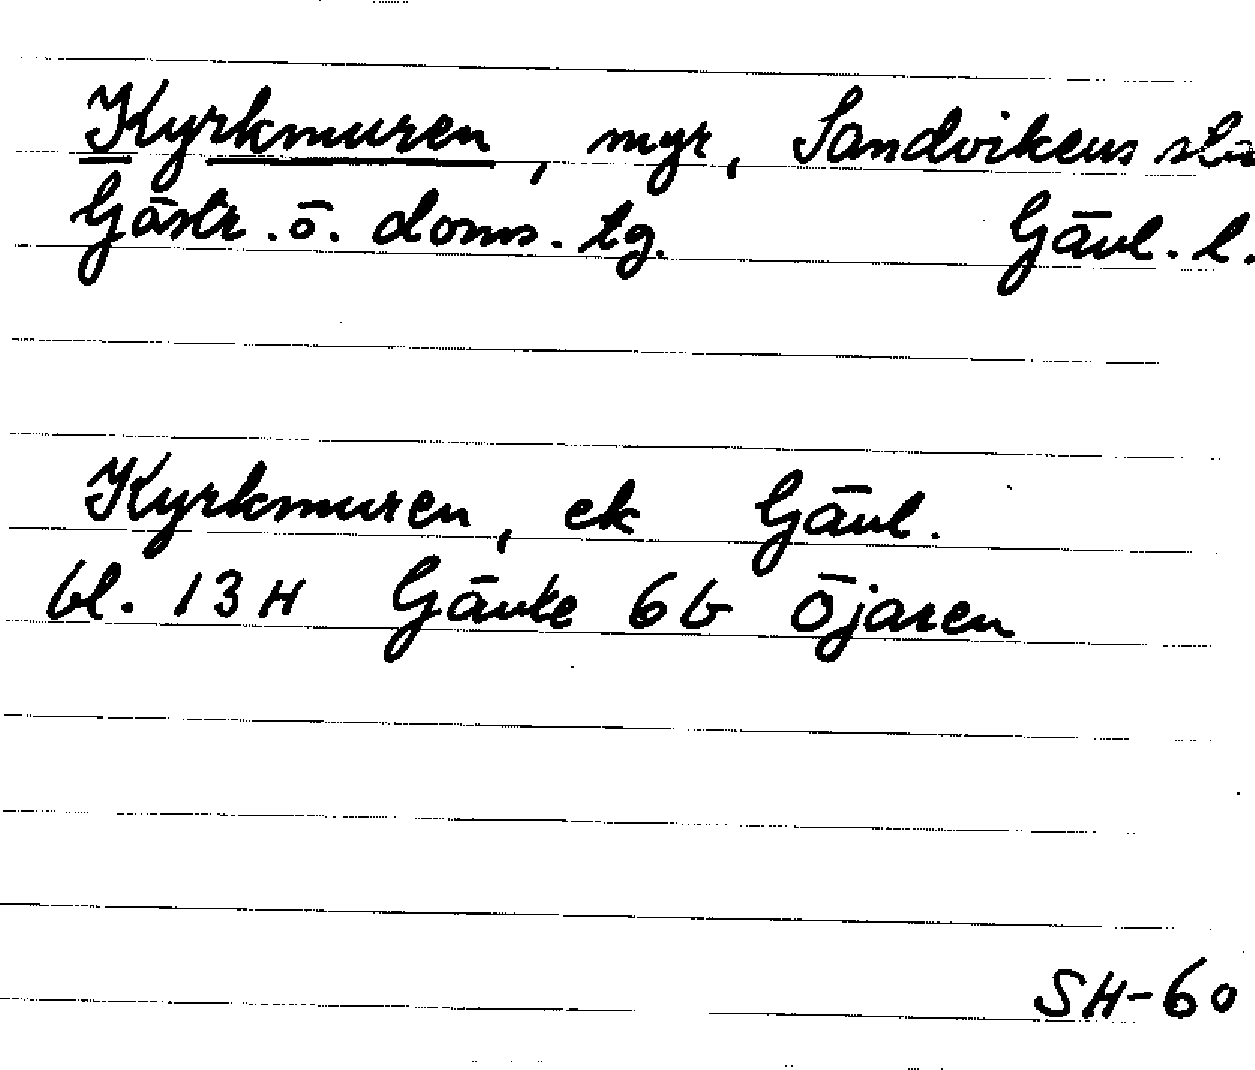 Kyrkmuren, myr, Sandvikens
Gästr. ö. doms. tg. Gävl. l.
Kyrkmuren, ek Gävl.
bl. 13 H Gävle 6 b Öjaren
SH-60